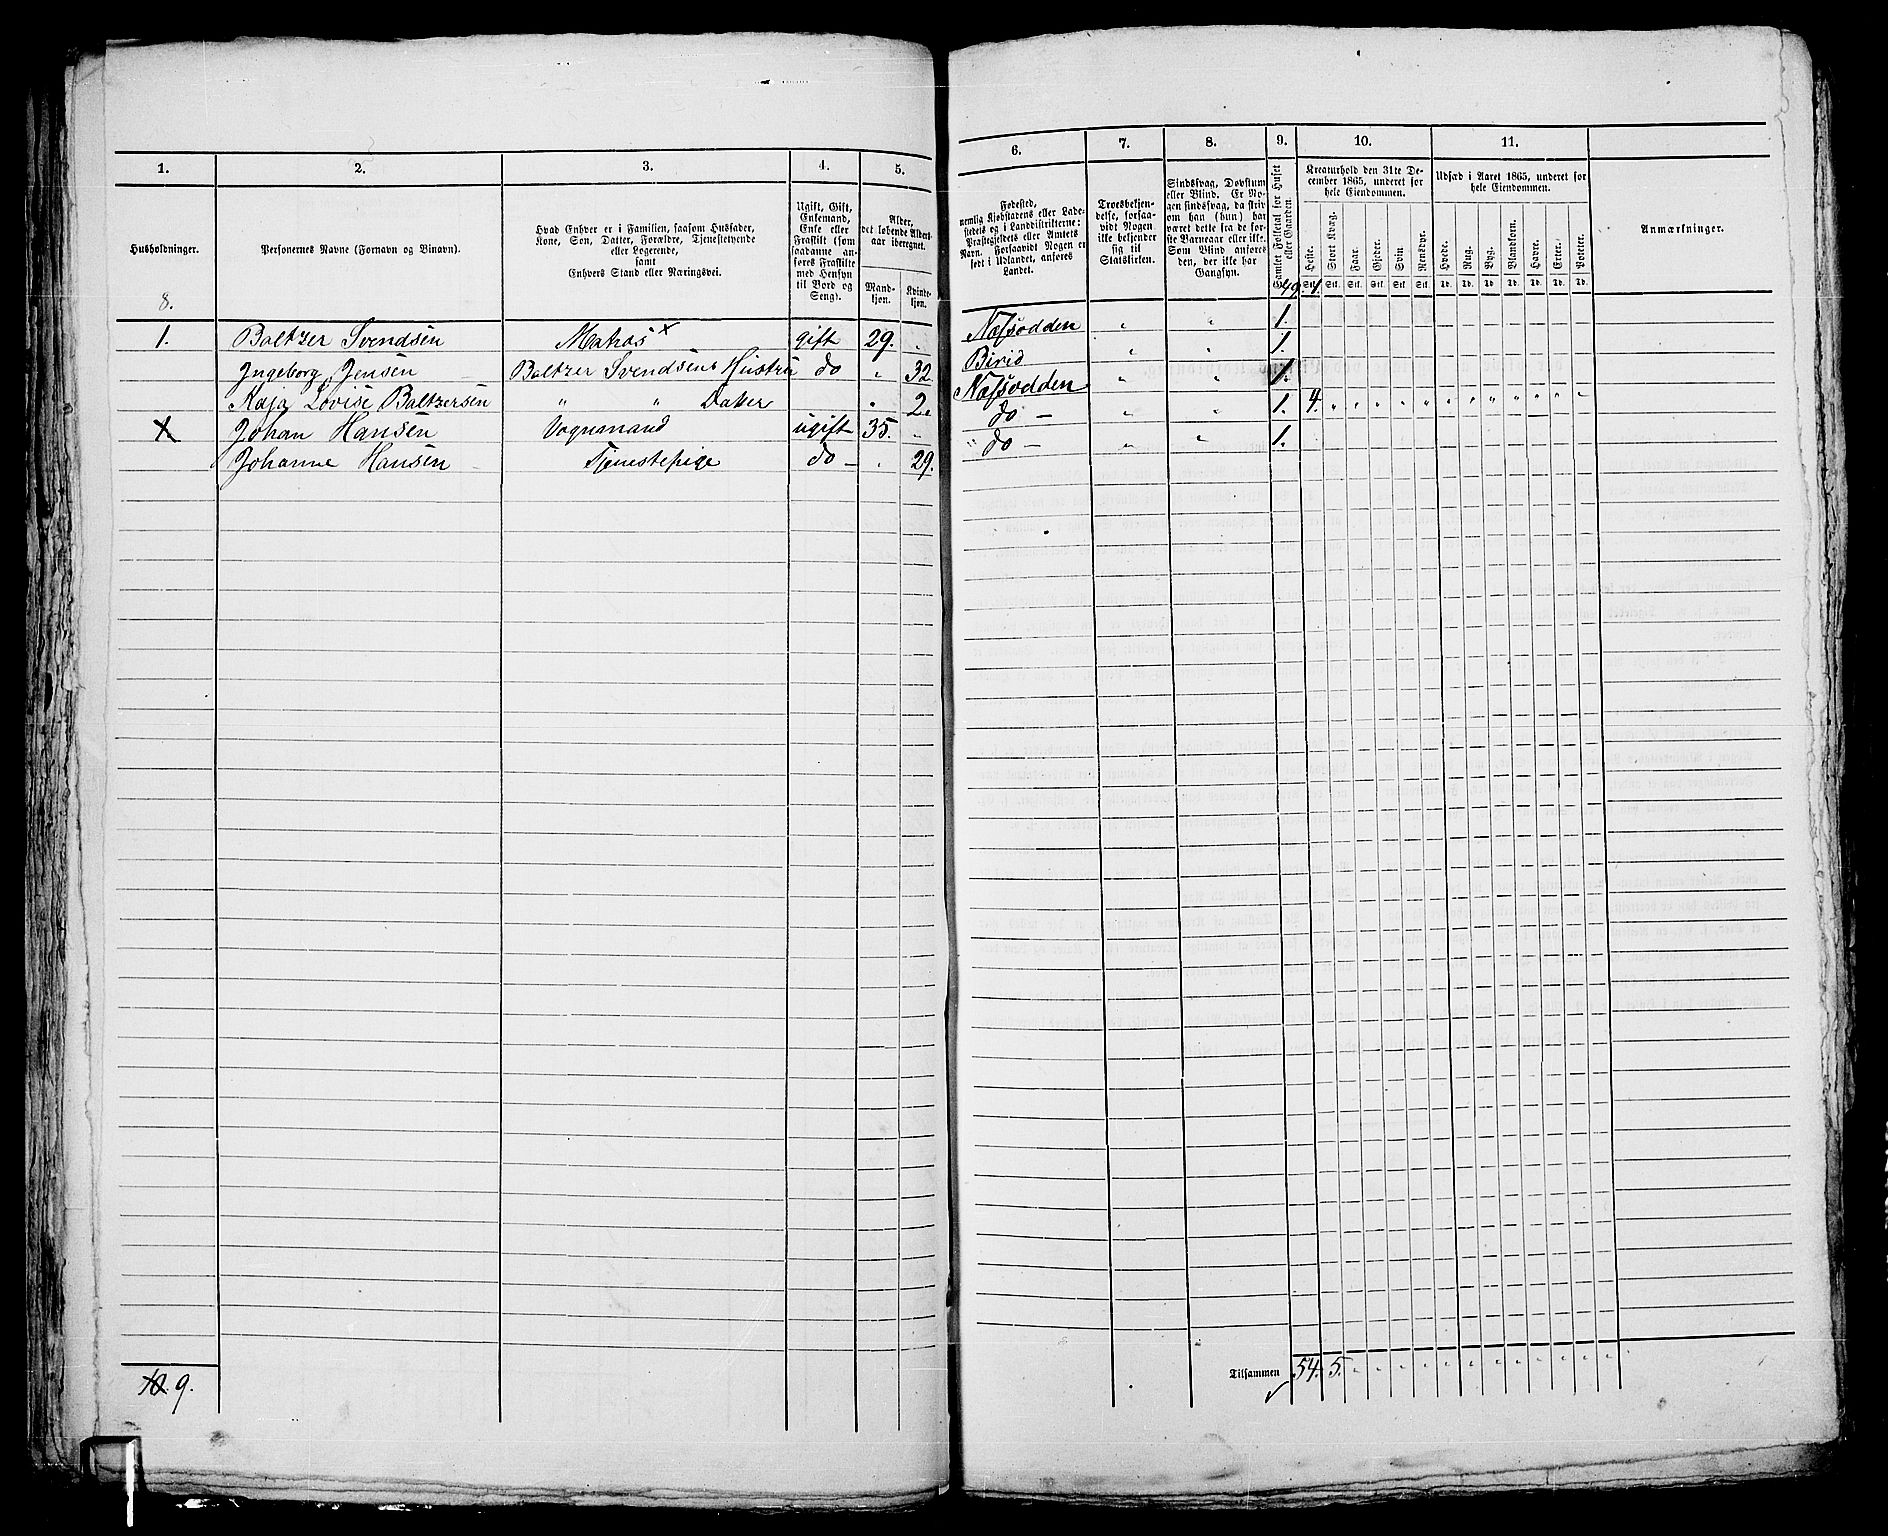 1. 2. 3. 4. 5.
Husholdninger.
8.
Personernes Navne (Fornavn og Vinavn).
Hvad Enhver er i Familien, saasom Husfader,
Kone, Søn, Datter, Forældre, Tjenestetyende
eller Logerende,
samt
Enhvers Stand eller Næringsvei.
Ugift, Gift,
Enkemand,
Enke eller
Fraskilt (som
saadanne an-
føres Fraskilte
med Hensyn
til Bord og
Seng).
Alder,
det løbende Alders-
aar iberegnet.
Mand-
kjøn.
Kvinde-
kjøn.
1. Baltzer Svendsen Matros x gift 29. "
Ingeborg Jensen Baltzer Svendsens Hustru do " 32
Kaja Lovise Baltzersen " " Datter " 2.
X Johan Hansen Vognmand ugift 35. "
Johanne Hansen Tjenestepige do – " 29.
10. 9.
6. 7. 8. 9. 10. 11.
Fødested,
nemlig Kjøbstadens eller Lade-
stedets og i Landdistrikterne:
Præstegjeldets eller Amtets
Navn. Forsaavidt Nogen er
født i Udlandet, anføres
Landet.
Troesbekjen-
delse, forsaa-
vidt Nogen
ikke bekjender
sig til
Statskirken.
Sindssvag, Døvstum
eller Blind. Er No-
gen sindssvag, da skriv
om han (hun) har
været dette fra de før-
ste Barneaar eller ikke.
Som Blind anføres
den, der ikke har
Gangsyn.
Samlet Folketal for Huset
eller Gaarden.
Kreaturhold den 31te De-
cember 1865, underet for
hele Eiendommen.
Heste. Stort Kvæg. Faar. Gjeder. Svin Rensdyr.
Stk. Stk. Stk. Stk. Stk. Stk.
Udsæd i Aaret 1865, underet for
hele Eiendommen.
Hvede. Rug. Byg. Blandkorn. Havre. Erter. Poteter.
Td. Td. Td. Td. Td. Td. Td.
Anmærkninger.
49. 1.
Næsodden " " 1.
Birid " " 1.
Næsodden " " 1.
do – " " 1. 4. " " " " " " " " " " " "
" do – " " 1.
Tilsammen 54. 5. " " " " " " " " " " " "